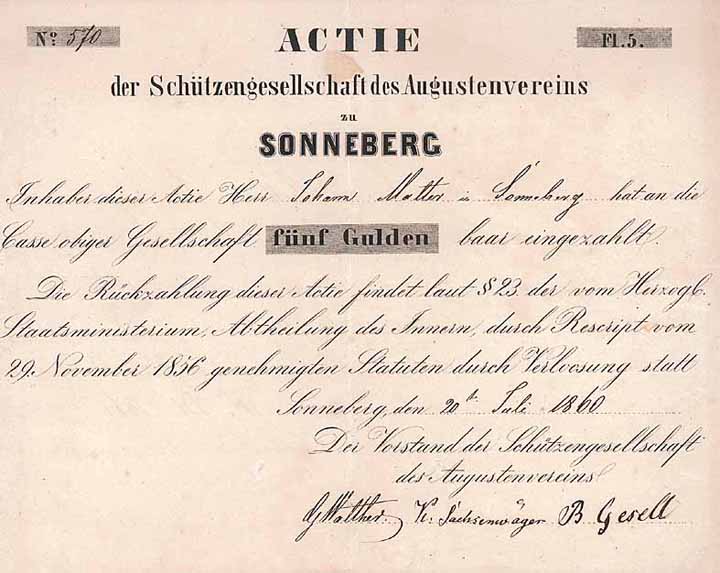 No. 570 ACTIE Fl. 5.
der Schützengesellschaft des Augustenvereins
zu
SONNEBERG
Inhaber dieser Actie Herr Johann Matter in Sonneberg hat an die
Casse obiger Gesellschaft fünf Gulden baar eingezahlt.
Die Rückzahlung dieser Actie findet laut § 23. der vom Herzogl.
Staatsministerium, Abtheilung des Innern, durch Rescript vom
29. November 1856 genehmigten Statuten durch Verloosung statt
Sonneberg, den 20t. Juli 1860
Der Vorstand der Schützengesellschaft
des Augustenvereins
G Walther. K. Sachsenwäger B Gesell